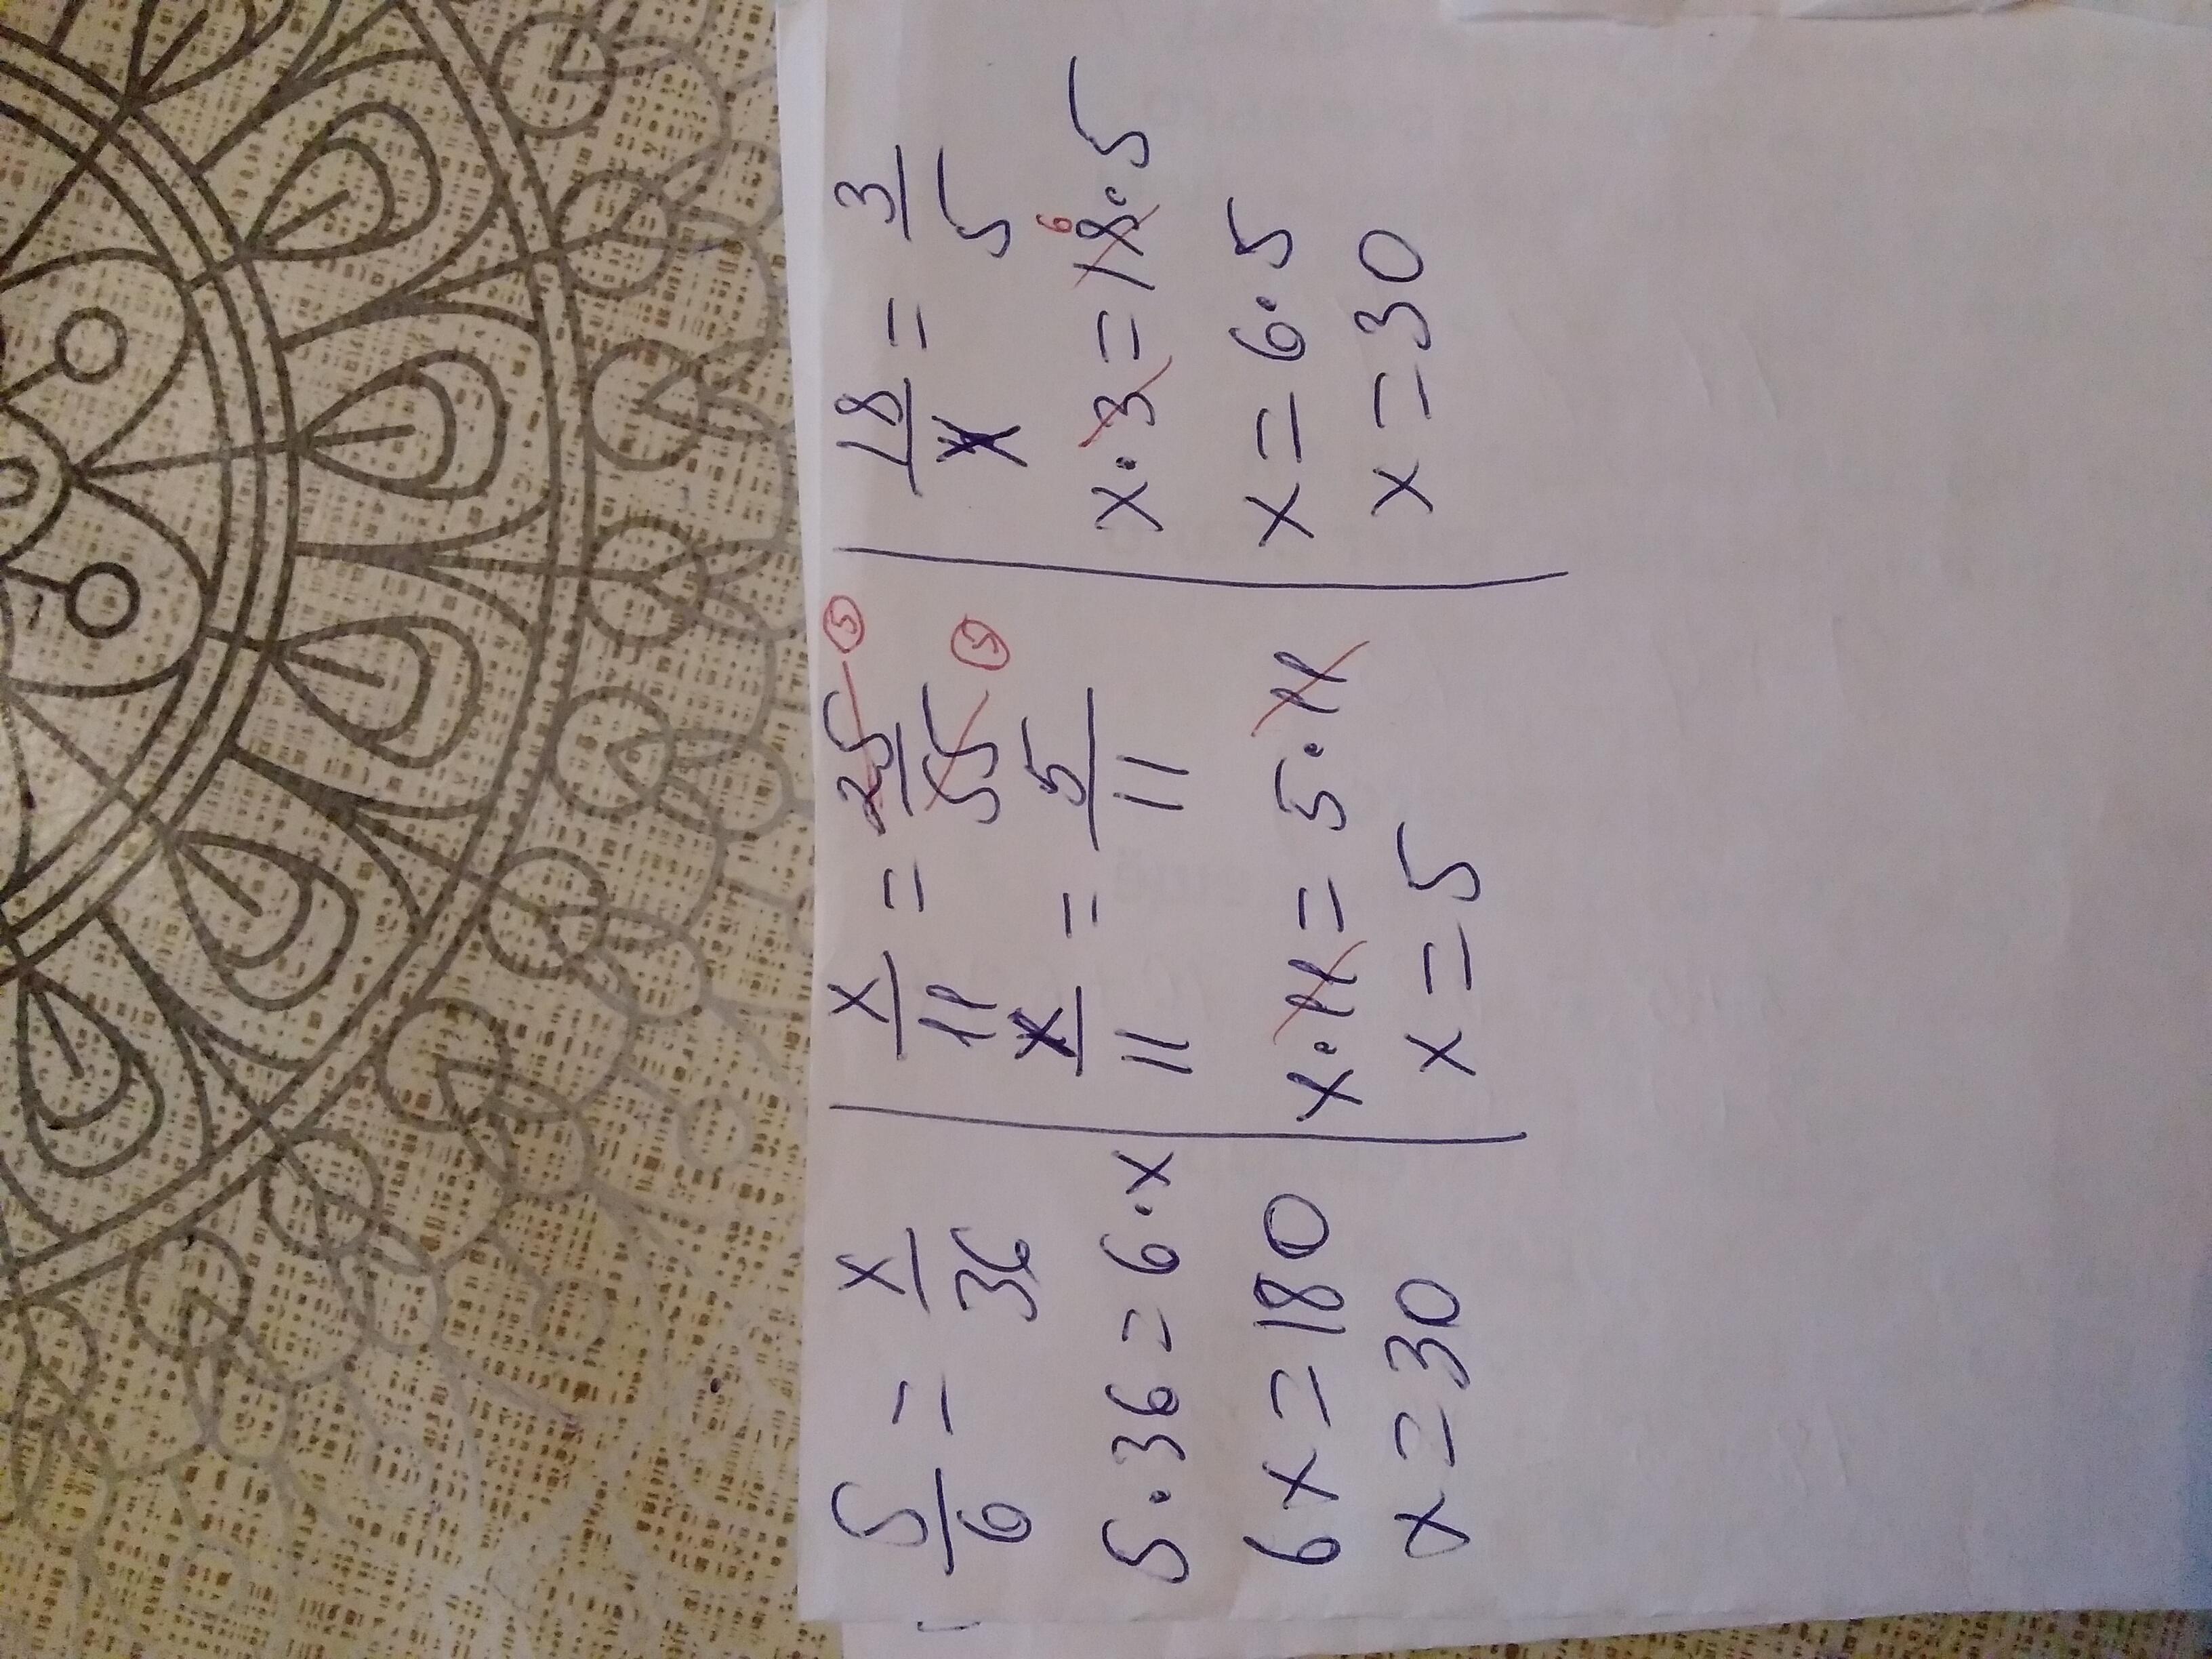 5/6 = x/36
5·36=6·x
6x=180
x=30
x/11 = 25/55 ⑤ ⑤
x/11 = 5/11
x·11=5·11
x=5
18/x = 3/5
6
x·3=18·5
x=6·5
x=30